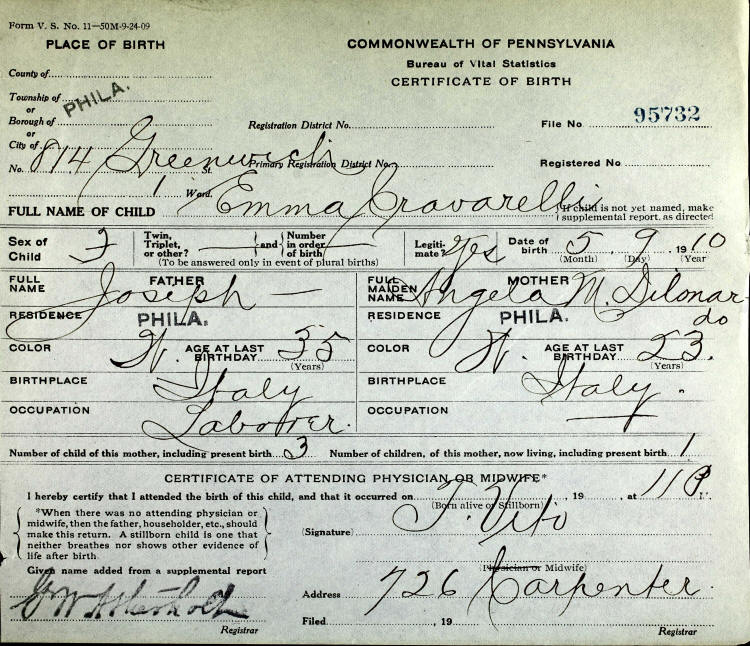 Form V. S. No. 11—50M-9-24-09
PLACE OF BIRTH
COMMONWEALTH OF PENNSYLVANIA
Bureau of Vital Statistics
CERTIFICATE OF BIRTH
County of
Township of
PHILA.
or
Borough of
or
City of
Registration District No.
File No. 95732
No. 814 Greenwich St.
Primary Registration District No.
Registered No.
1 Ward.
FULL NAME OF CHILD Emma Cravarelli
If child is not yet named, make supplemental report, as directed
Sex of Child F
Twin, Triplet, or other? and Number in order of birth
(To be answered only in event of plural births)
Legiti- mate? Yes
Date of birth 5 9 1910
(Month) (Day) (Year)
FATHER
FULL NAME Joseph —
RESIDENCE PHILA.
COLOR W. AGE AT LAST BIRTHDAY 35
(Years)
BIRTHPLACE Italy
OCCUPATION Laborer.
MOTHER
FULL MAIDEN NAME Angela M. Dilonardo
RESIDENCE PHILA.
COLOR W. AGE AT LAST BIRTHDAY 23.
(Years)
BIRTHPLACE Italy.
OCCUPATION —
Number of child of this mother, including present birth 3
Number of children, of this mother, now living, including present birth 1
CERTIFICATE OF ATTENDING PHYSICIAN OR MIDWIFE*
I hereby certify that I attended the birth of this child, and that it occurred on , 19 , at 11 P M.
(Born alive or Stillborn)
*When there was no attending physician or
midwife, then the father, householder, etc., should
make this return. A stillborn child is one that
neither breathes nor shows other evidence of
life after birth.
(Signature) T. Vito
(Physician or Midwife)
Given name added from a supplemental report
Address 726 Carpenter.
Registrar
Filed , 19
Registrar